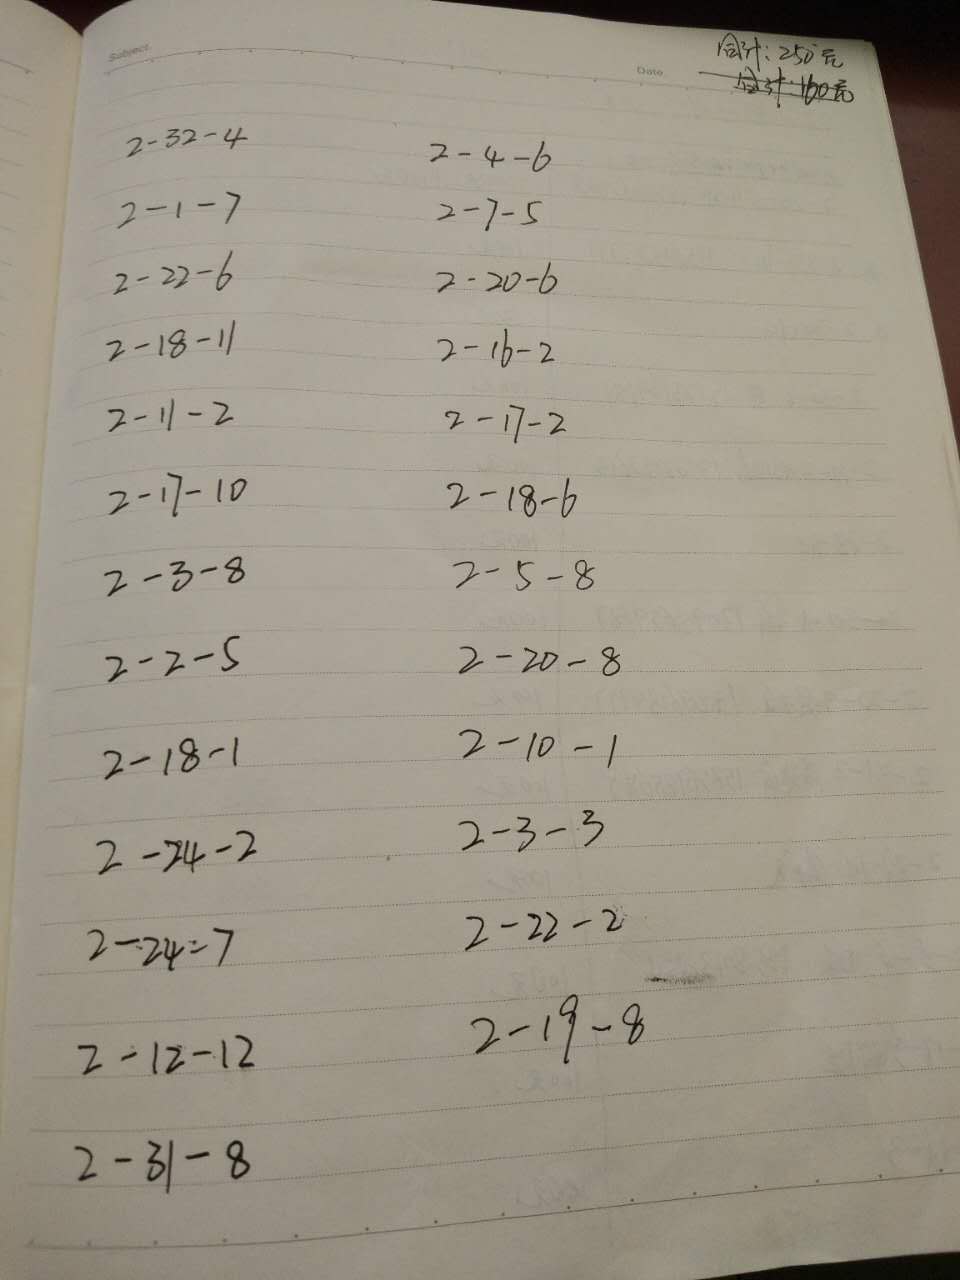 Subject
Date
合计:250元
合计:160元
2-32-4
2-1-7
2-22-6
2-18-11
2-11-2
2-17-10
2-3-8
2-2-5
2-18-1
2-24-2
2-24-7
2-12-12
2-31-8
2-4-6
2-7-5
2-20-6
2-16-2
2-17-2
2-18-6
2-5-8
2-20-8
2-10-1
2-3-3
2-22-2
2-19-8